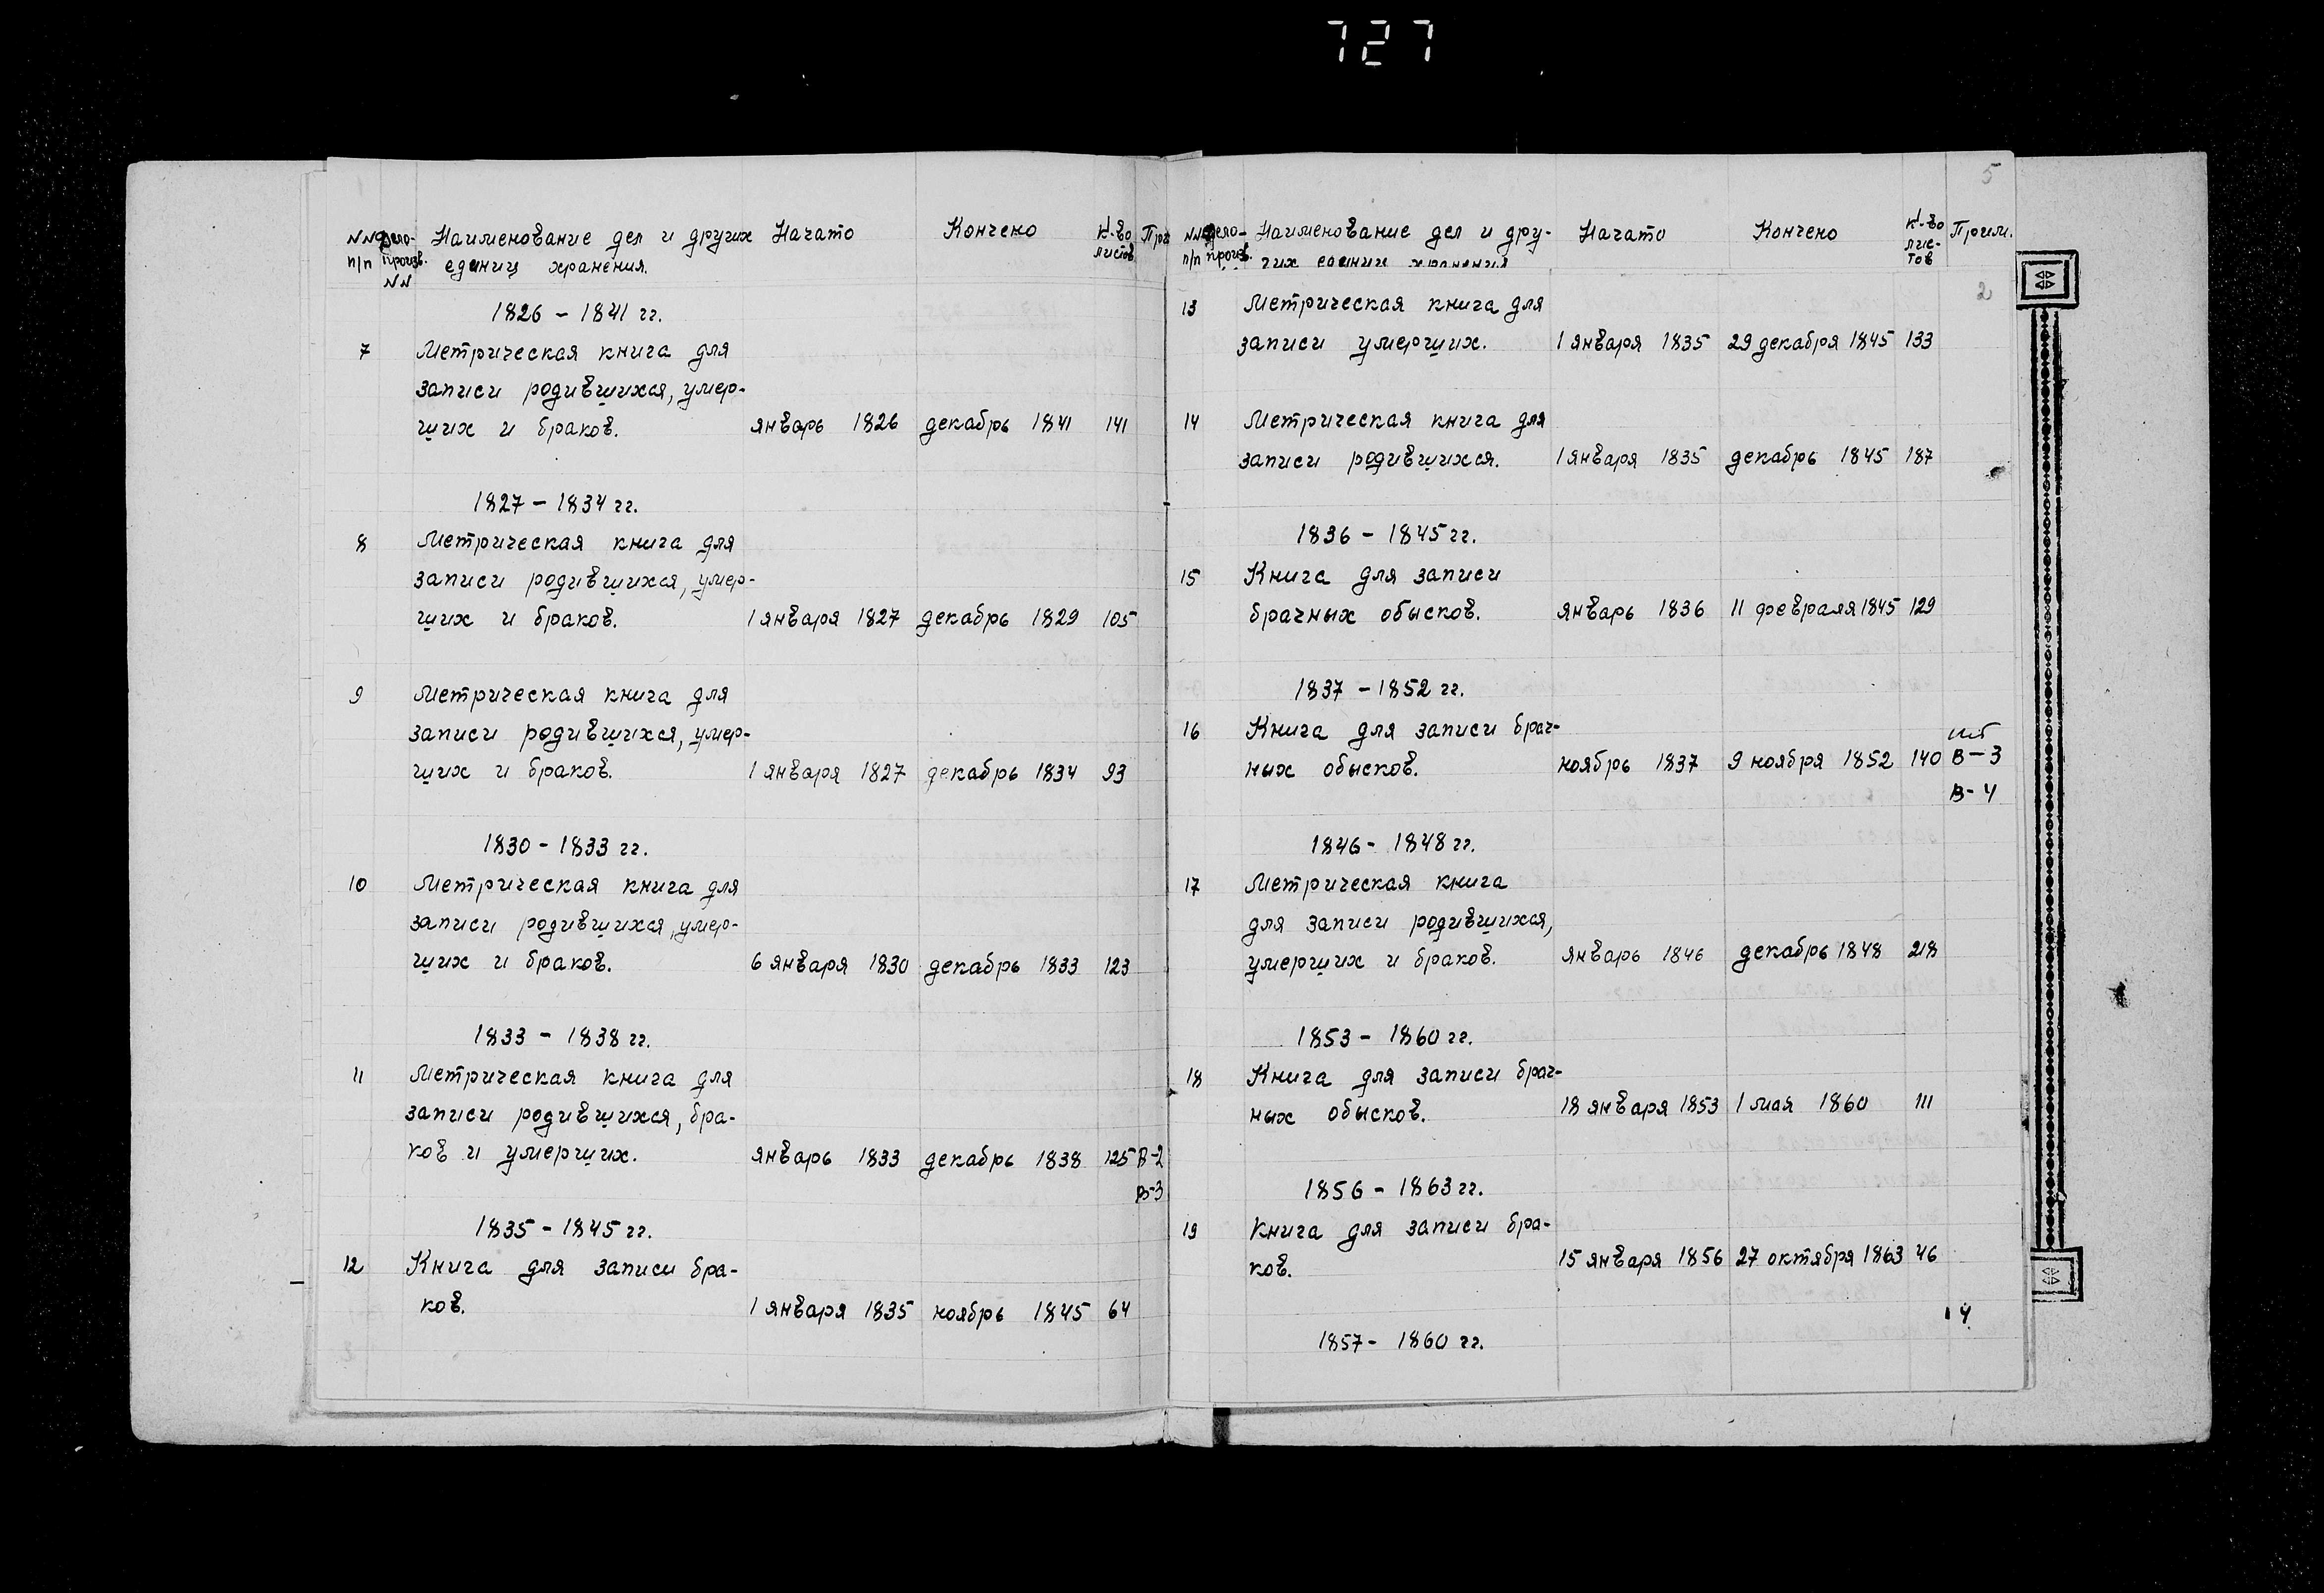 727
NN п/п Дело-произв. NN Наименование дел и других единиц хранения. Начато Кончено К-во листов
1826 – 1841 гг.
7 Метрическая книга для
записи родившихся, умер-
ших и браков. январь 1826 декабрь 1841 141
1827 – 1834 гг.
8 Метрическая книга для
записи родившихся, умер-
ших и браков. 1 января 1827 декабрь 1829 105
9 Метрическая книга для
записи родившихся, умер-
ших и браков. 1 января 1827 декабрь 1834 93
1830 – 1833 гг.
10 Метрическая книга для
записи родившихся, умер-
ших и браков. 6 января 1830 декабрь 1833 123
1833 – 1838 гг.
11 Метрическая книга для
записи родившихся, бра-
ков и умерших. январь 1833 декабрь 1838 125 В-2
В-3
1835 – 1845 гг.
12 Книга для записи бра-
ков. 1 января 1835 ноябрь 1845 64
5
NN п/п Дело-произв. Наименование дел и дру-гих единиц хранения Начато Кончено К-во лис-тов Прим.
2
13 Метрическая книга для
записи умерших. 1 января 1835 29 декабря 1845 133
14 Метрическая книга для
записи родившихся. 1 января 1835 декабрь 1845 187
1836 – 1845 гг.
15 Книга для записи
брачных обысков. январь 1836 11 февраля 1845 129
1837 – 1852 гг.
16 Книга для записи брач-
ных обысков. ноябрь 1837 9 ноября 1852 140 В-3
В-4
1846 - 1848 гг.
17 Метрическая книга
для записи родившихся,
умерших и браков. январь 1846 декабрь 1848 218
1853 – 1860 гг.
18 Книга для записи брач-
ных обысков. 18 января 1853 1 мая 1860 111
1856 – 1863 гг.
19 Книга для записи бра-
ков. 15 января 1856 27 октября 1863 46
1857 - 1860 гг.